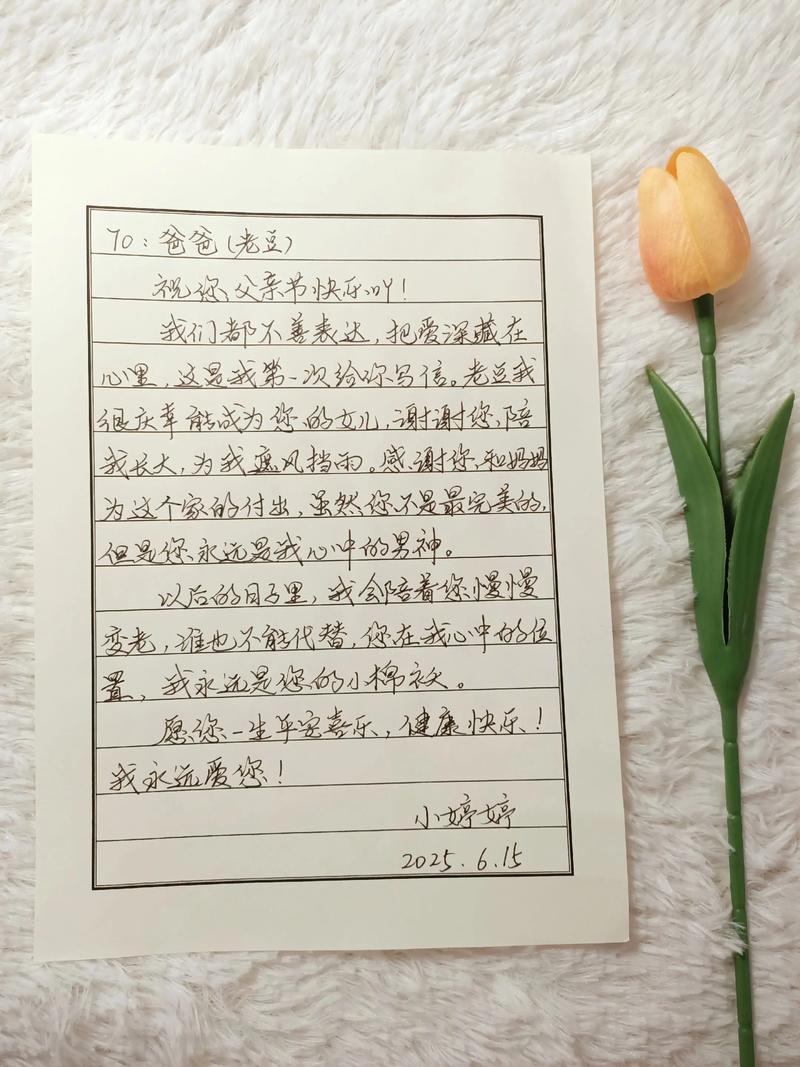 TO：爸爸(老豆)
祝您父亲节快乐吖！
我们都不善表达，把爱深藏在
心里，这是我第一次给你写信。老豆我
很庆幸能成为您的女儿，谢谢您陪
我长大，为我遮风挡雨。感谢您和妈妈
为这个家的付出，虽然您不是最完美的，
但是您永远是我心中的男神。
以后的日子里，我会陪着您慢慢
变老，谁也不能代替，您在我心中的位
置，我永远是您的小棉袄。
愿您一生平安喜乐，健康快乐！
我永远爱您！
小婷婷
2025.6.15